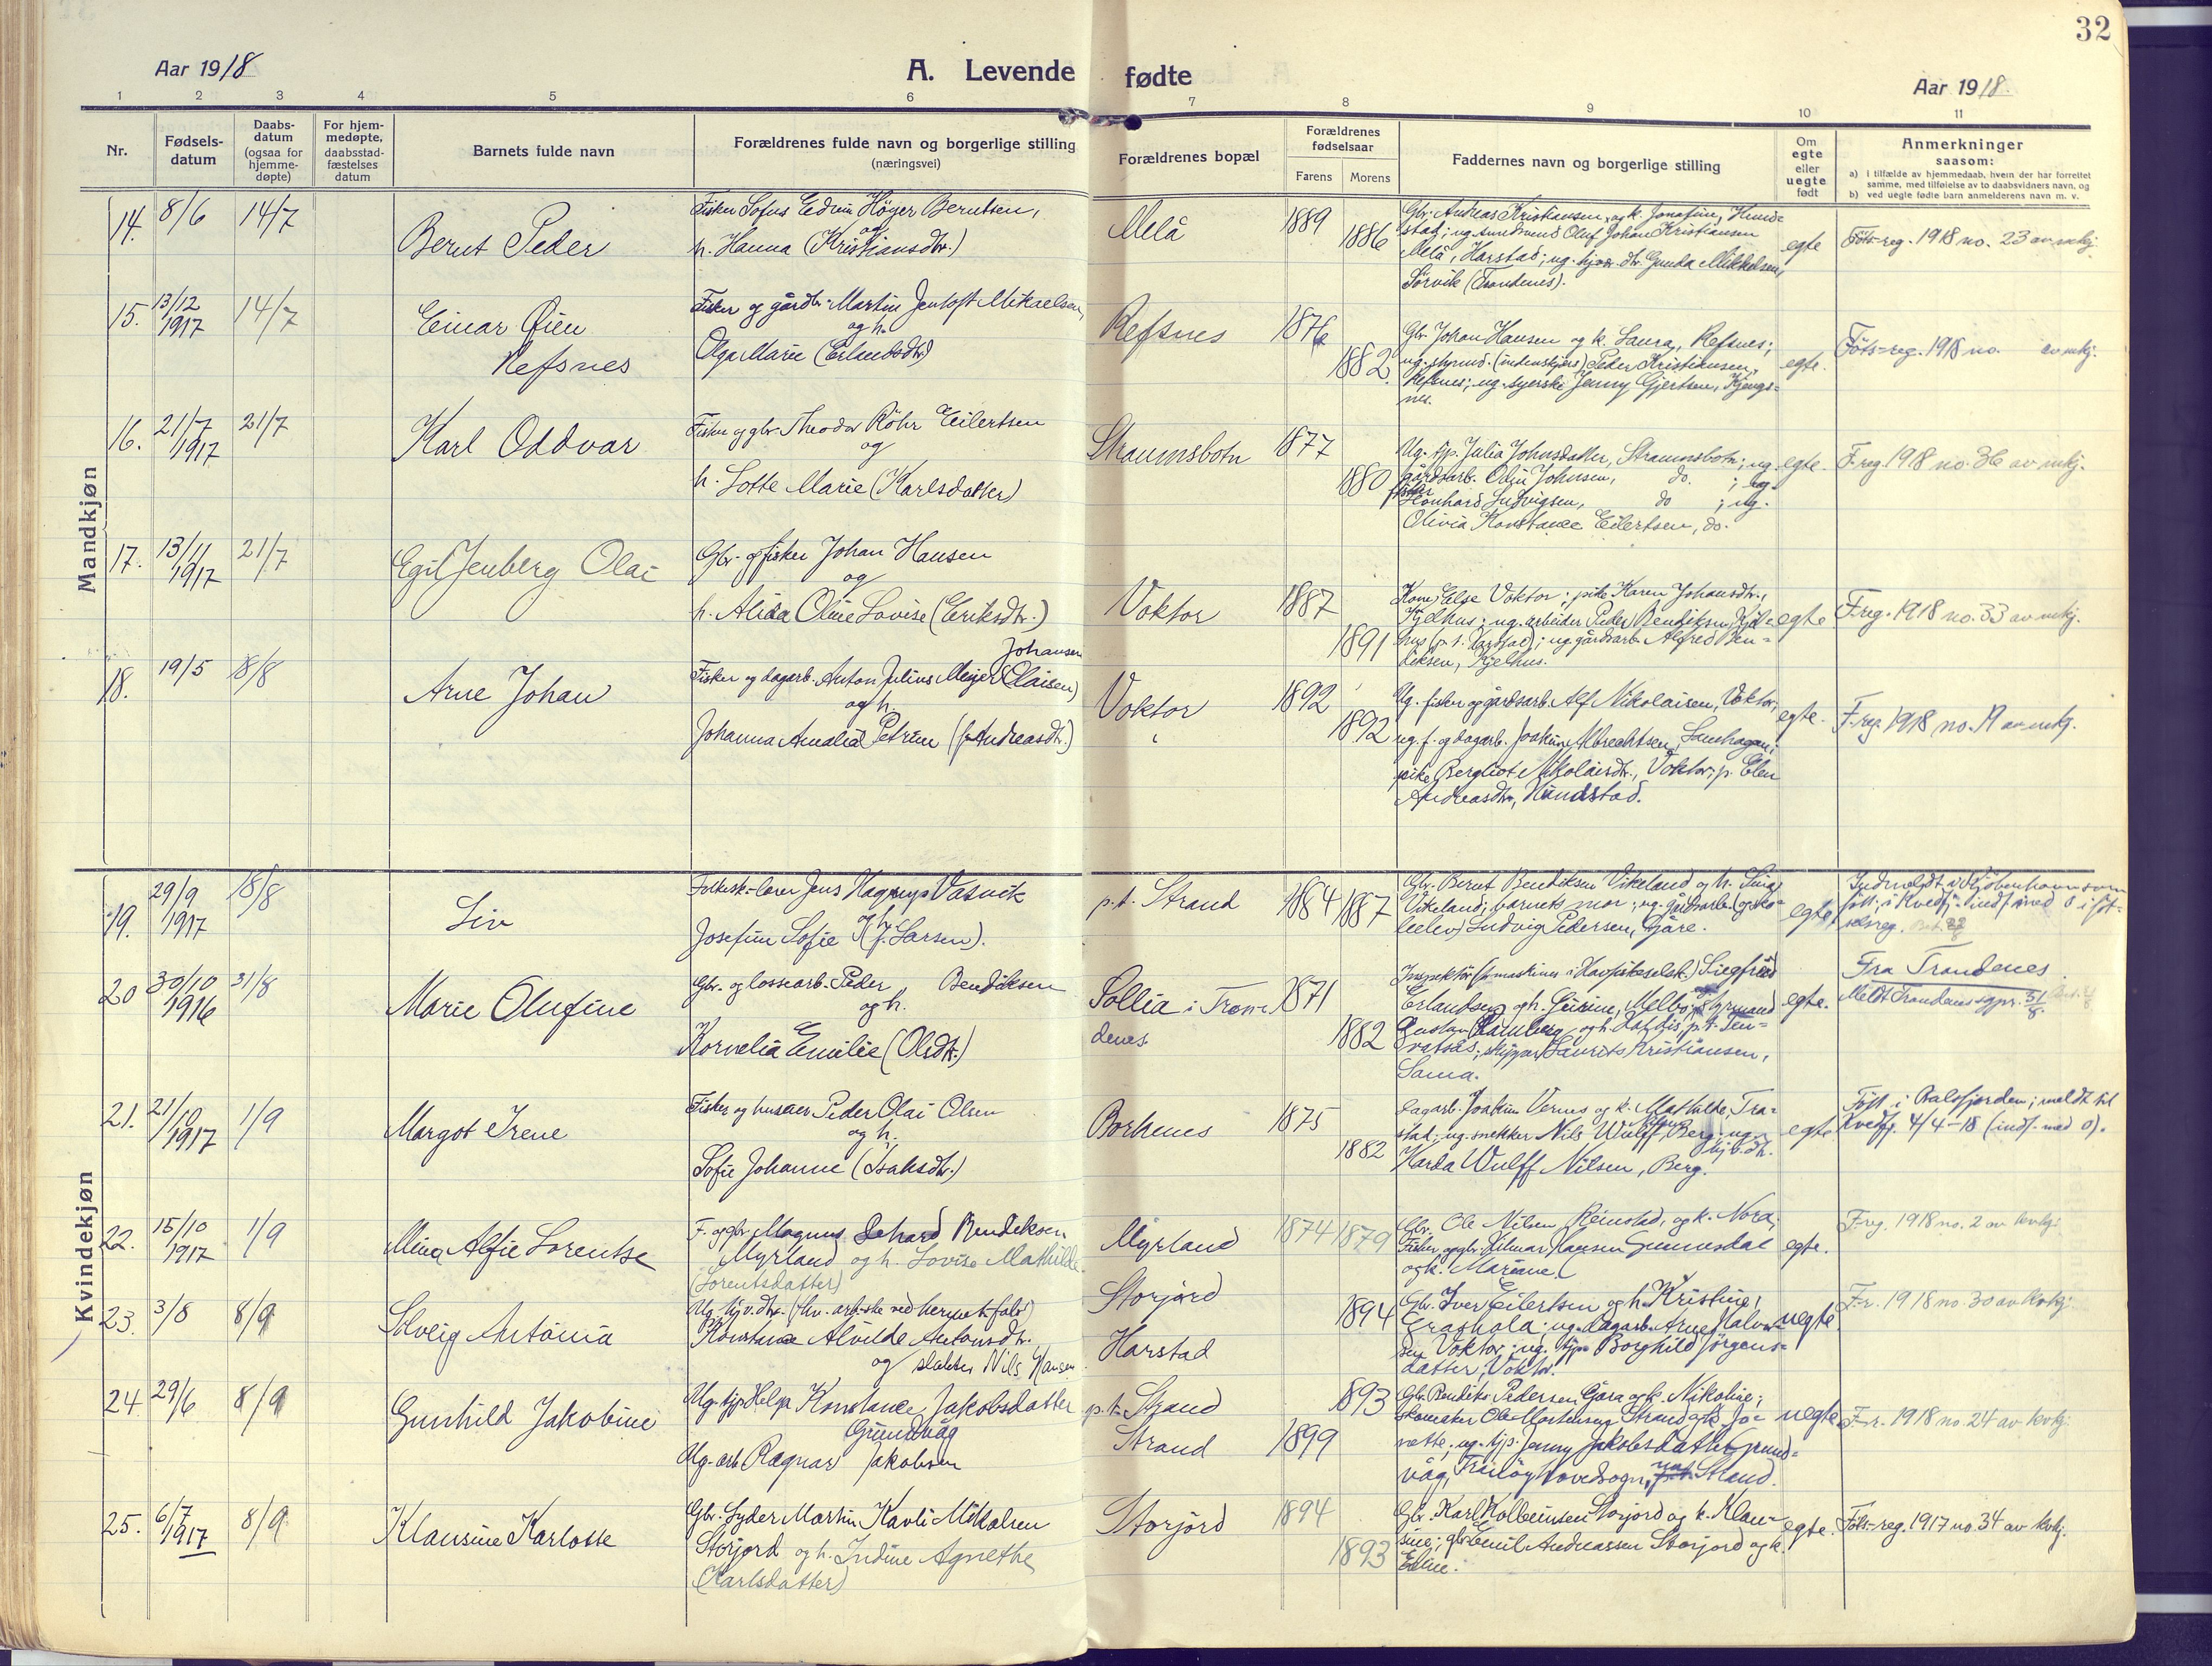 32
Aar 1918
A. Levende fødte
Aar 1918.
1 2 3 4 5 6 7 8 9 10 11
Nr.
Fødsels-
datum
Daabs-
datum
(ogsaa for
hjemme-
døpte)
For hjem-
medøpte,
daabsstad-
fæstelses
datum
Barnets fulde navn
Forældrenes fulde navn og borgerlige stilling
(næringsvei)
Forældrenes bopæl
Forældrenes
fødselsaar
Farens Morens
Faddernes navn og borgerlige stilling
Om
egte
eller
uegte
født
Anmerkninger
saasom:
a) i tilfælde av hjemmedaab, hvem der har forrettet
samme, med tilføielse av to daabsvidners navn, og
b) ved uegte fødte barn anmelderens navn m. v.
Mandkjøn
14. 8/6 14/7
Bernt Peder
Fisker Sofus Edvin Höyer Berntsen,
og
h. Hanna (Kristiansdtr.)
Melå
1889
1886
Gbr. Andreas Kristiansen og k. Josefine, Hund-
stad; ug. Oluf Johan Kristiansen
Melå, Harstad; ug. hjv. dtr. Gunda Mikkelsen,
Sörvik (Trondenes).
egte
Föts-reg. 1918 no. 23 av mkj.
15. 13/12
1917
14/7
Einar Öien
Refsnes
Fisker og gårdbr. Martin Jentoft Mikaelsen,
og h.
Olga Marie (Erlandsdtr)
Refsnes
1876
1882
Gbr. Johan Hansen og k. Laura, Refsnes;
ug. styrmd. (indenskjærs) Peder Kristiansen,
Refsnes; ug. syerske Jenny Gjertsen, Kjengs-
nes.
egte.
Föts-reg. 1918 no. av mkj.
16. 21/7
1917
21/7
Karl Oddvar
Fisker og gbr. Theodor Röhr Eilertsen
og
h. Lotte Marie (Karlsdatter)
Straumsbotn
1877
1880
Ug. tj. Julia Johnsdatter, Straumsbotn; ug.
gårdsarb. Odin Johnsen, do. ; ug.
fisker
Leonhard Ludvigsen, do ; ug.
Olivia Konstance Eilertsen, do.
egte.
F.reg. 1918 no. 36 av mkj.
17. 13/11
1917
21/7
Egil Jenberg Olai
Gbr. og fisker Johan Hansen
og
h. Alida Oline Lovise (Eriksdtr.)
Voktor
1887
1891
Kone Else Voktor; pike Karen Johansdtr.,
Kjelhus; ug. arbeider Peder Bendiksen, Kjel-
hus (p. t. Harstad); ug. gårdsarb. Alfred Ben-
diksen, Kjelhus.
egte
F.reg. 1918 no. 33 av mkj.
18. 19/5 18/8
Arne Johan
Johansen
Fisker og dagarb. Anton Julius Meyer (Olaisen)
og h.
Johanna Amalia Petrine (f. Andreasdtr.)
Voktor
1892
1892
Ug. fisker og gårdsarb. Alf Nikolaisen, Voktor;
ug. f. og dagarb. Joakim Albrechtsen,
pike Bergliot Nikolaisdtr., Voktor; p. Elen
Andreasdtr., Hundstad.
egte.
F.reg. 1918 no. 19 av mkj.
Kvindekjøn
19. 29/9
1917
18/8
Liv
Folkesk.-lærer Jens Hagerup Vasvik
og h.
Josefine Sofie (f. Larsen).
p.t. Strand
1884 1887
Gbr. Bernt Bendiksen Vikeland og h. Sina
Vikeland; barnets mor; ug. gårdsarb. (og sko-
leelev) Ludvig Pedersen, Gåre.
egte
Indmeldt i Kjöbenhavn som
fött; i Kvedfj. indf. med 0 i föd-
selsreg.
20 30/10
1916
31/8
Marie Olufine
Gbr. og lossearb. Peder Bendiksen
og h.
Kornelia Emilie (Olsdtr.)
Sollia i Tron-
denes
1871
1882
Inspektör (for maskiner i Havfiskeselsk.) Siegfried
Erlandsen og h. Guirine, Melbo; styrmand
Gustav Ramberg og h. p. t.
skipper Laurits Kristiansen,
Sama.
egte.
Fra Trondenes
Meldt Trondenes sgpr. 31/8.
21. 21/10
1917
1/9
Margot Irene
Fisker og huseier Peder Olai Olsen
og h.
Sofie Johanne (Isaksdtr.)
Borkenes
1875
1882
Dagarb. Joakim Vernes og k. Mathilde, Tra-
stad; ug. snekker Nils Wulff Nilsen, Berg; ug.
hjv. dtr.
Harda Wulff Nilsen, Berg.
egte
Fött i Balsfjorden; meldt til
Kvedfj. 4/4-18 (indf. med 0).
22. 15/10
1917
1/9
Mina Alfie Lorentse
F. og gbr. Magnus Lehard Bendiksen
Myrland og h. Lovise Mathilde
(Lorentsdatter)
Myrland
1874 1879
Gbr. Ole Nilsen Reinstad, og k. Nora;
Fisker og gbr. Hilmar Hansen Gunnesdal
og k. Mariane.
egte.
F.reg. 1918 no. 2 av kvkj.
23. 3/8 8/9
Solveig Antonia
Ug. hjv. dtr. (fhv. arb.ske ved hermetikfabr.)
Konstanse Alvilde Antonsdtr.
og slakter Nils Hansen
Storjord
Harstad
1894
Gbr. Iver Eilertsen og h. Kristine,
Grashola; ug. dagarb. Arne Halvor-
sen Voktor; ug. tjp. Borghild Jörgens-
datter, Voktor.
uegte.
F.r. 1918 no. 30 av kvkj.
24. 29/6 8/9
Gunhild Jakobine
Ug. tjp. Helga Konstance Jakobsdatter
Grundvåg
Ug. arb. Ragnar Jakobsen
p.t. Strand
Strand
1893
1899
Gbr. Bendiks Pedersen Gåra og k. Nikoline;
skomaker Ole Mortensen Strand og k. Ja-
nette; ug. tjp. Jenny Jakobsdatter Grund-
våg, hovedsogn, Strand.
uegte
F.r. 1918 no. 24 av kvkj.
25. 6/7
1917
8/9
Klausine Karlotte
Gbr. Lyder Martin Kavli Mikalsen
Storjord og h. Indine Agnethe
(Karlsdatter)
Storjord
1894
1893
Gbr. Karl Kolbeinsen Storjord og k. Klau-
sine; gbr. Emil Andreassen Storjord og k.
Eline.
egte.
Föts-reg. 1917 no. 34 av kvkj.